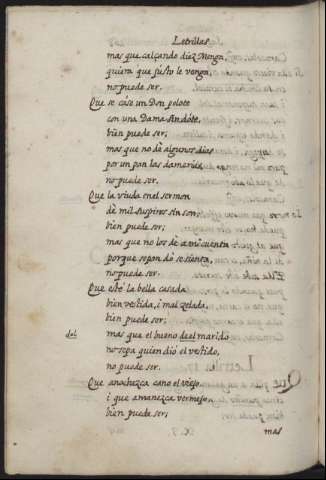 Letrillas
mas que calçando diez Menga,
quiera que justo le venga,
no puede ser.
Que se case un Don pelote
con una Dama sin dote,
bien puede ser;
mas que no dè algunos dias
por un pan las damerias,
no puede ser.
Que la viuda en el sermon
dè mil suspiros sin son,
bien puede ser;
mas que no los dè a mi cuenta
porque sepan do se sienta,
no puede ser.
Que esté la bella casada
bien vestida, i mal zelada,
bien puede ser;
del mas que el bueno de el marido
no sepa quien diò el vestido,
no puede ser.
Que anochezca cano el viejo,
i que amanezca vermejo,
bien puede ser;
mas